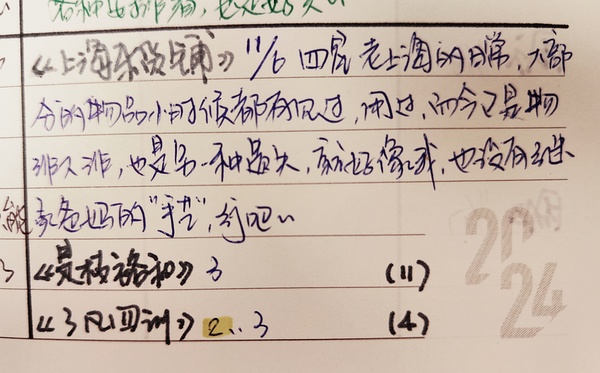 《上海杂货铺》 11/6 老上海的日常,大部
分的物品小时候都有见过,用过,而今已是物
非人非,也是另一种遗失,就好像我,也没有继
承爸妈的“手艺”,
《是枝裕和》 3 (11)
《了凡四训》 2、3 (4)
20
24